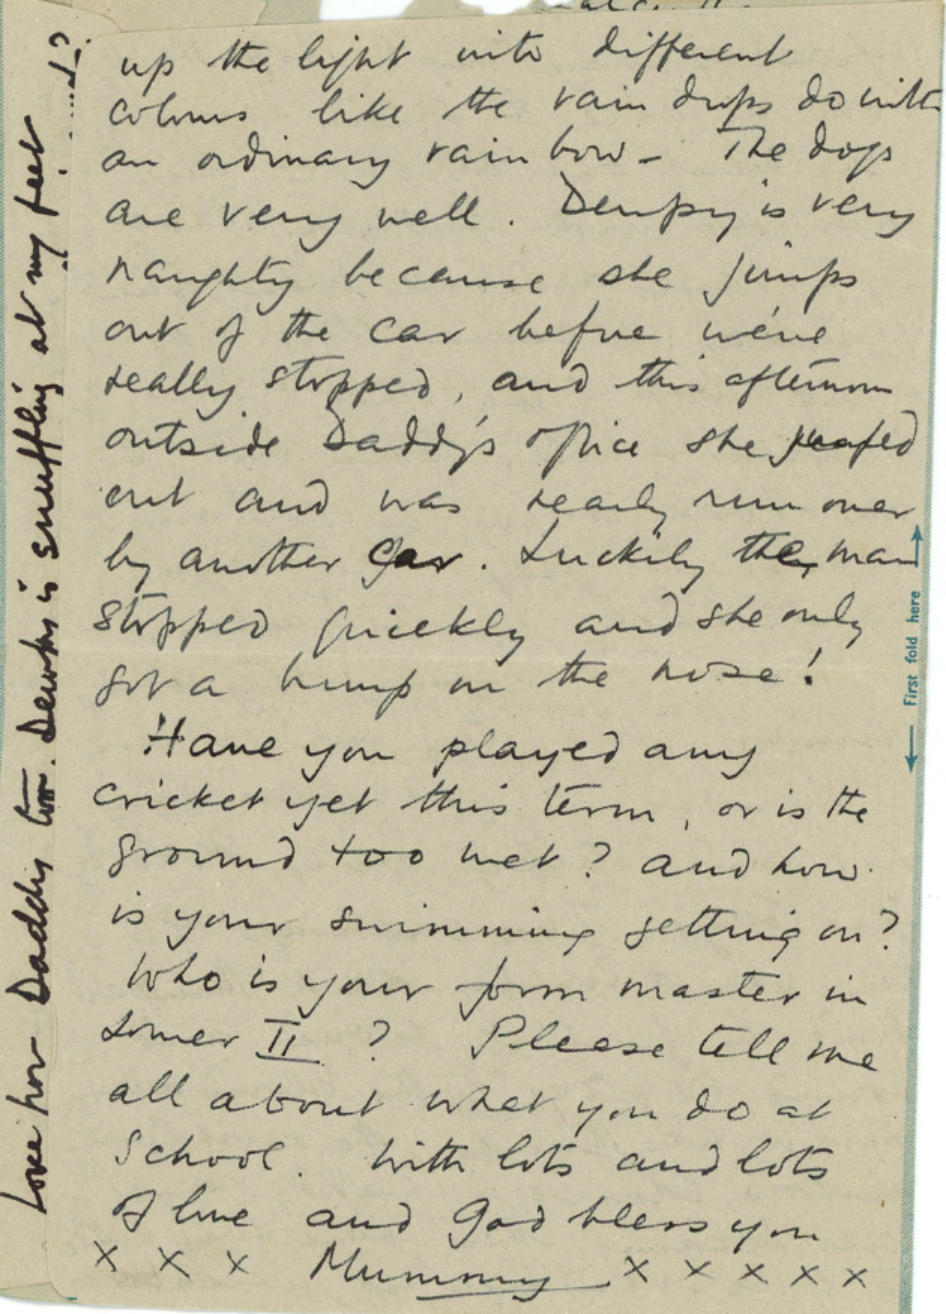 up the light into different
colours like the rain drops do with
an ordinary rain bow - The dogs
are very well. Dempsy is very
naughty because she jumps
out of the car before we're
really stopped, and this afternoon
outside Daddy's office she
out and was nearly run over
by another car. Luckily the man
stopped quickly and she only
got a bump on the nose!
Have you played any
cricket yet this term, or is the
ground too wet? and how
is your swimming getting on?
Who is your form master in
Lower II? Please tell me
all about what you do at
School. With lots and lots
of love and God bless you
x x x Mummy x x x x x
Love from Daddy too. is snuffling at my feet
First fold here